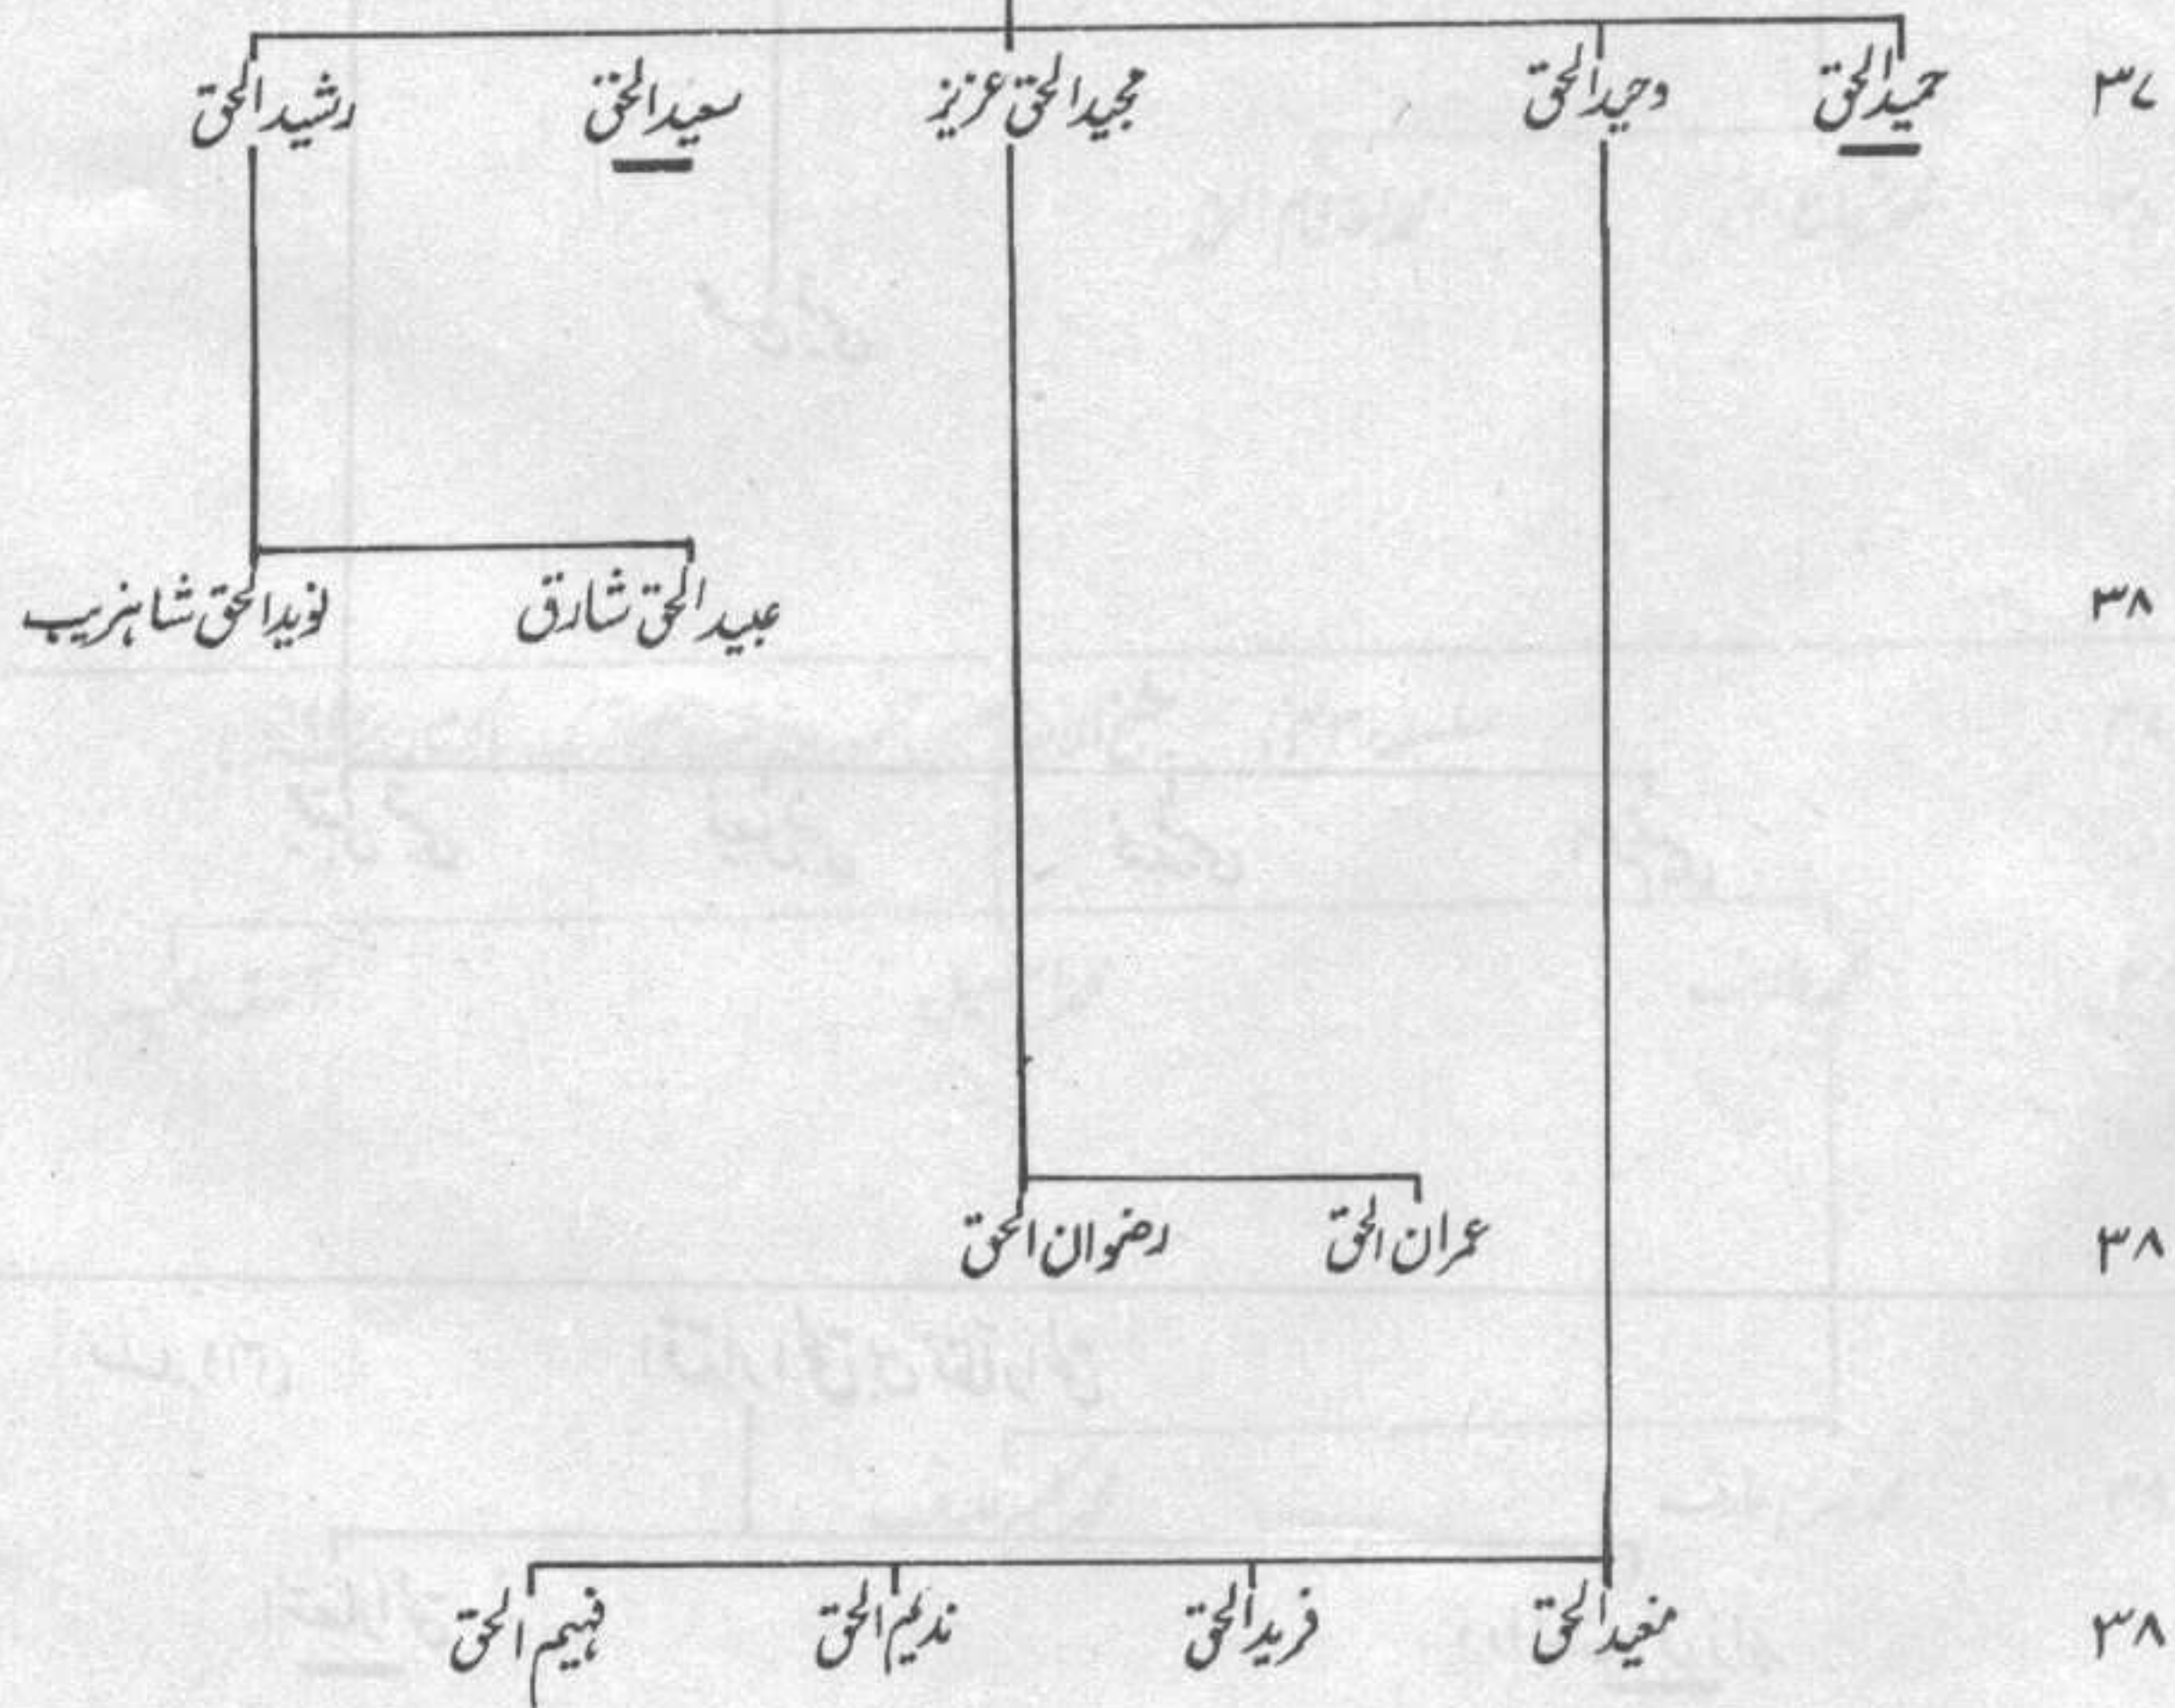 ۳۷ حمیدالحق وحیدالحق مجیدالحق عزیز سعیدالحق رشیدالحق
۳۸ عبیدالحق شارق نویدالحق شاہزیب
۳۸ عمران الحق رضوان الحق
۳۸ مفیدالحق فریدالحق ندیم الحق فہیم الحق